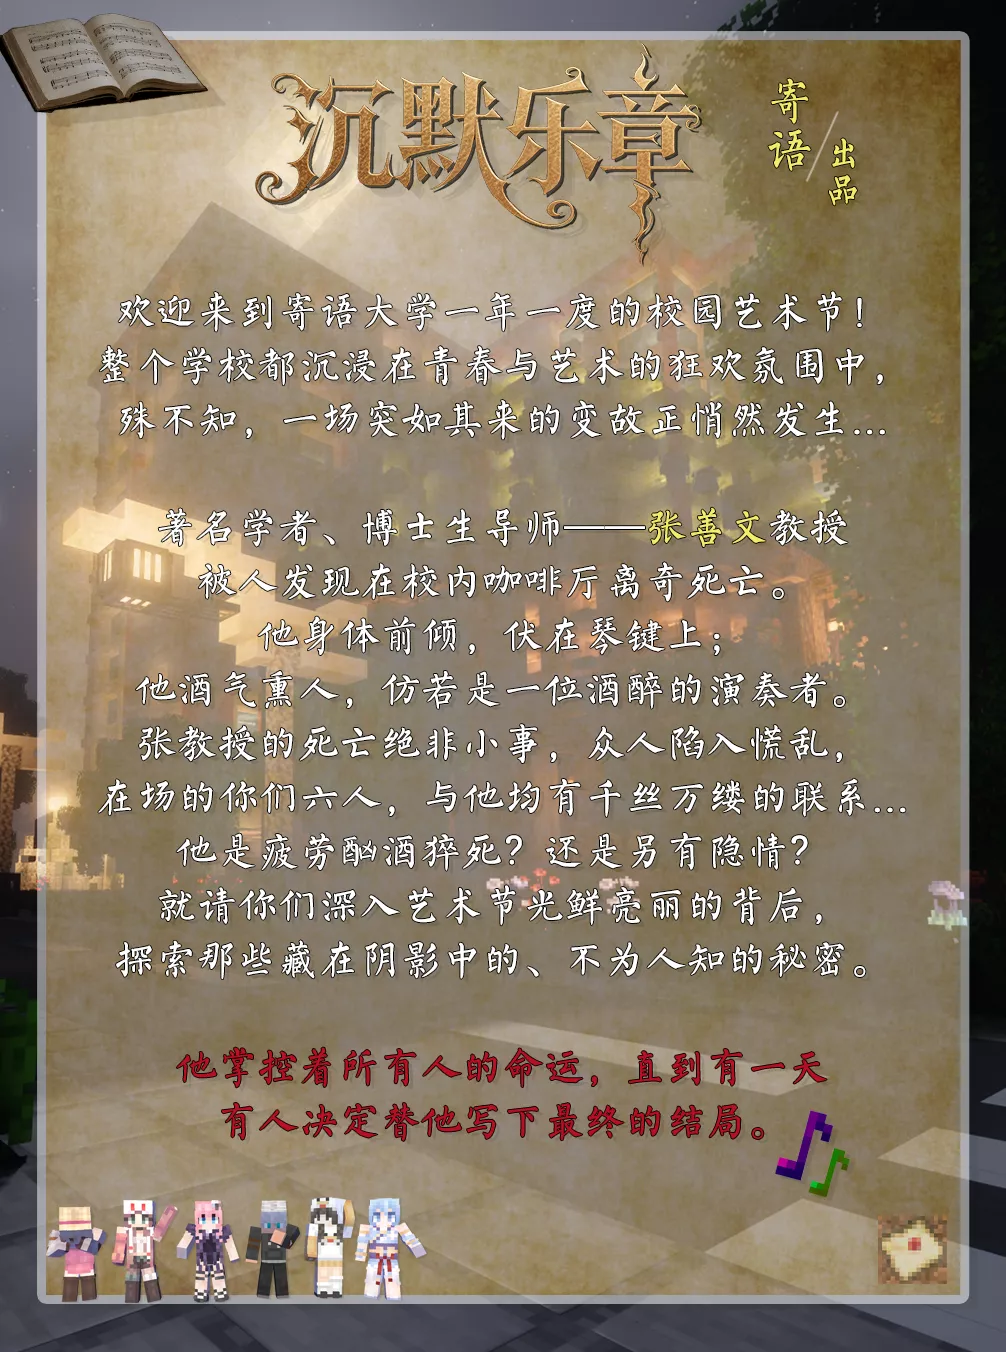 沉默乐章
寄语
出品
欢迎来到寄语大学一年一度的校园艺术节！
整个学校都沉浸在青春与艺术的狂欢氛围中，
殊不知，一场突如其来的变故正悄然发生...
著名学者、博士生导师——张善文教授
被人发现在校内咖啡厅离奇死亡。
他身体前倾，伏在琴键上；
他酒气熏人，仿若是一位酒醉的演奏者。
张教授的死亡绝非小事，众人陷入慌乱，
在场的你们六人，与他均有千丝万缕的联系...
他是疲劳酗酒猝死？还是另有隐情？
就请你们深入艺术节光鲜亮丽的背后，
探索那些藏在阴影中的、不为人知的秘密。
他掌控着所有人的命运，直到有一天
有人决定替他写下最终的结局。